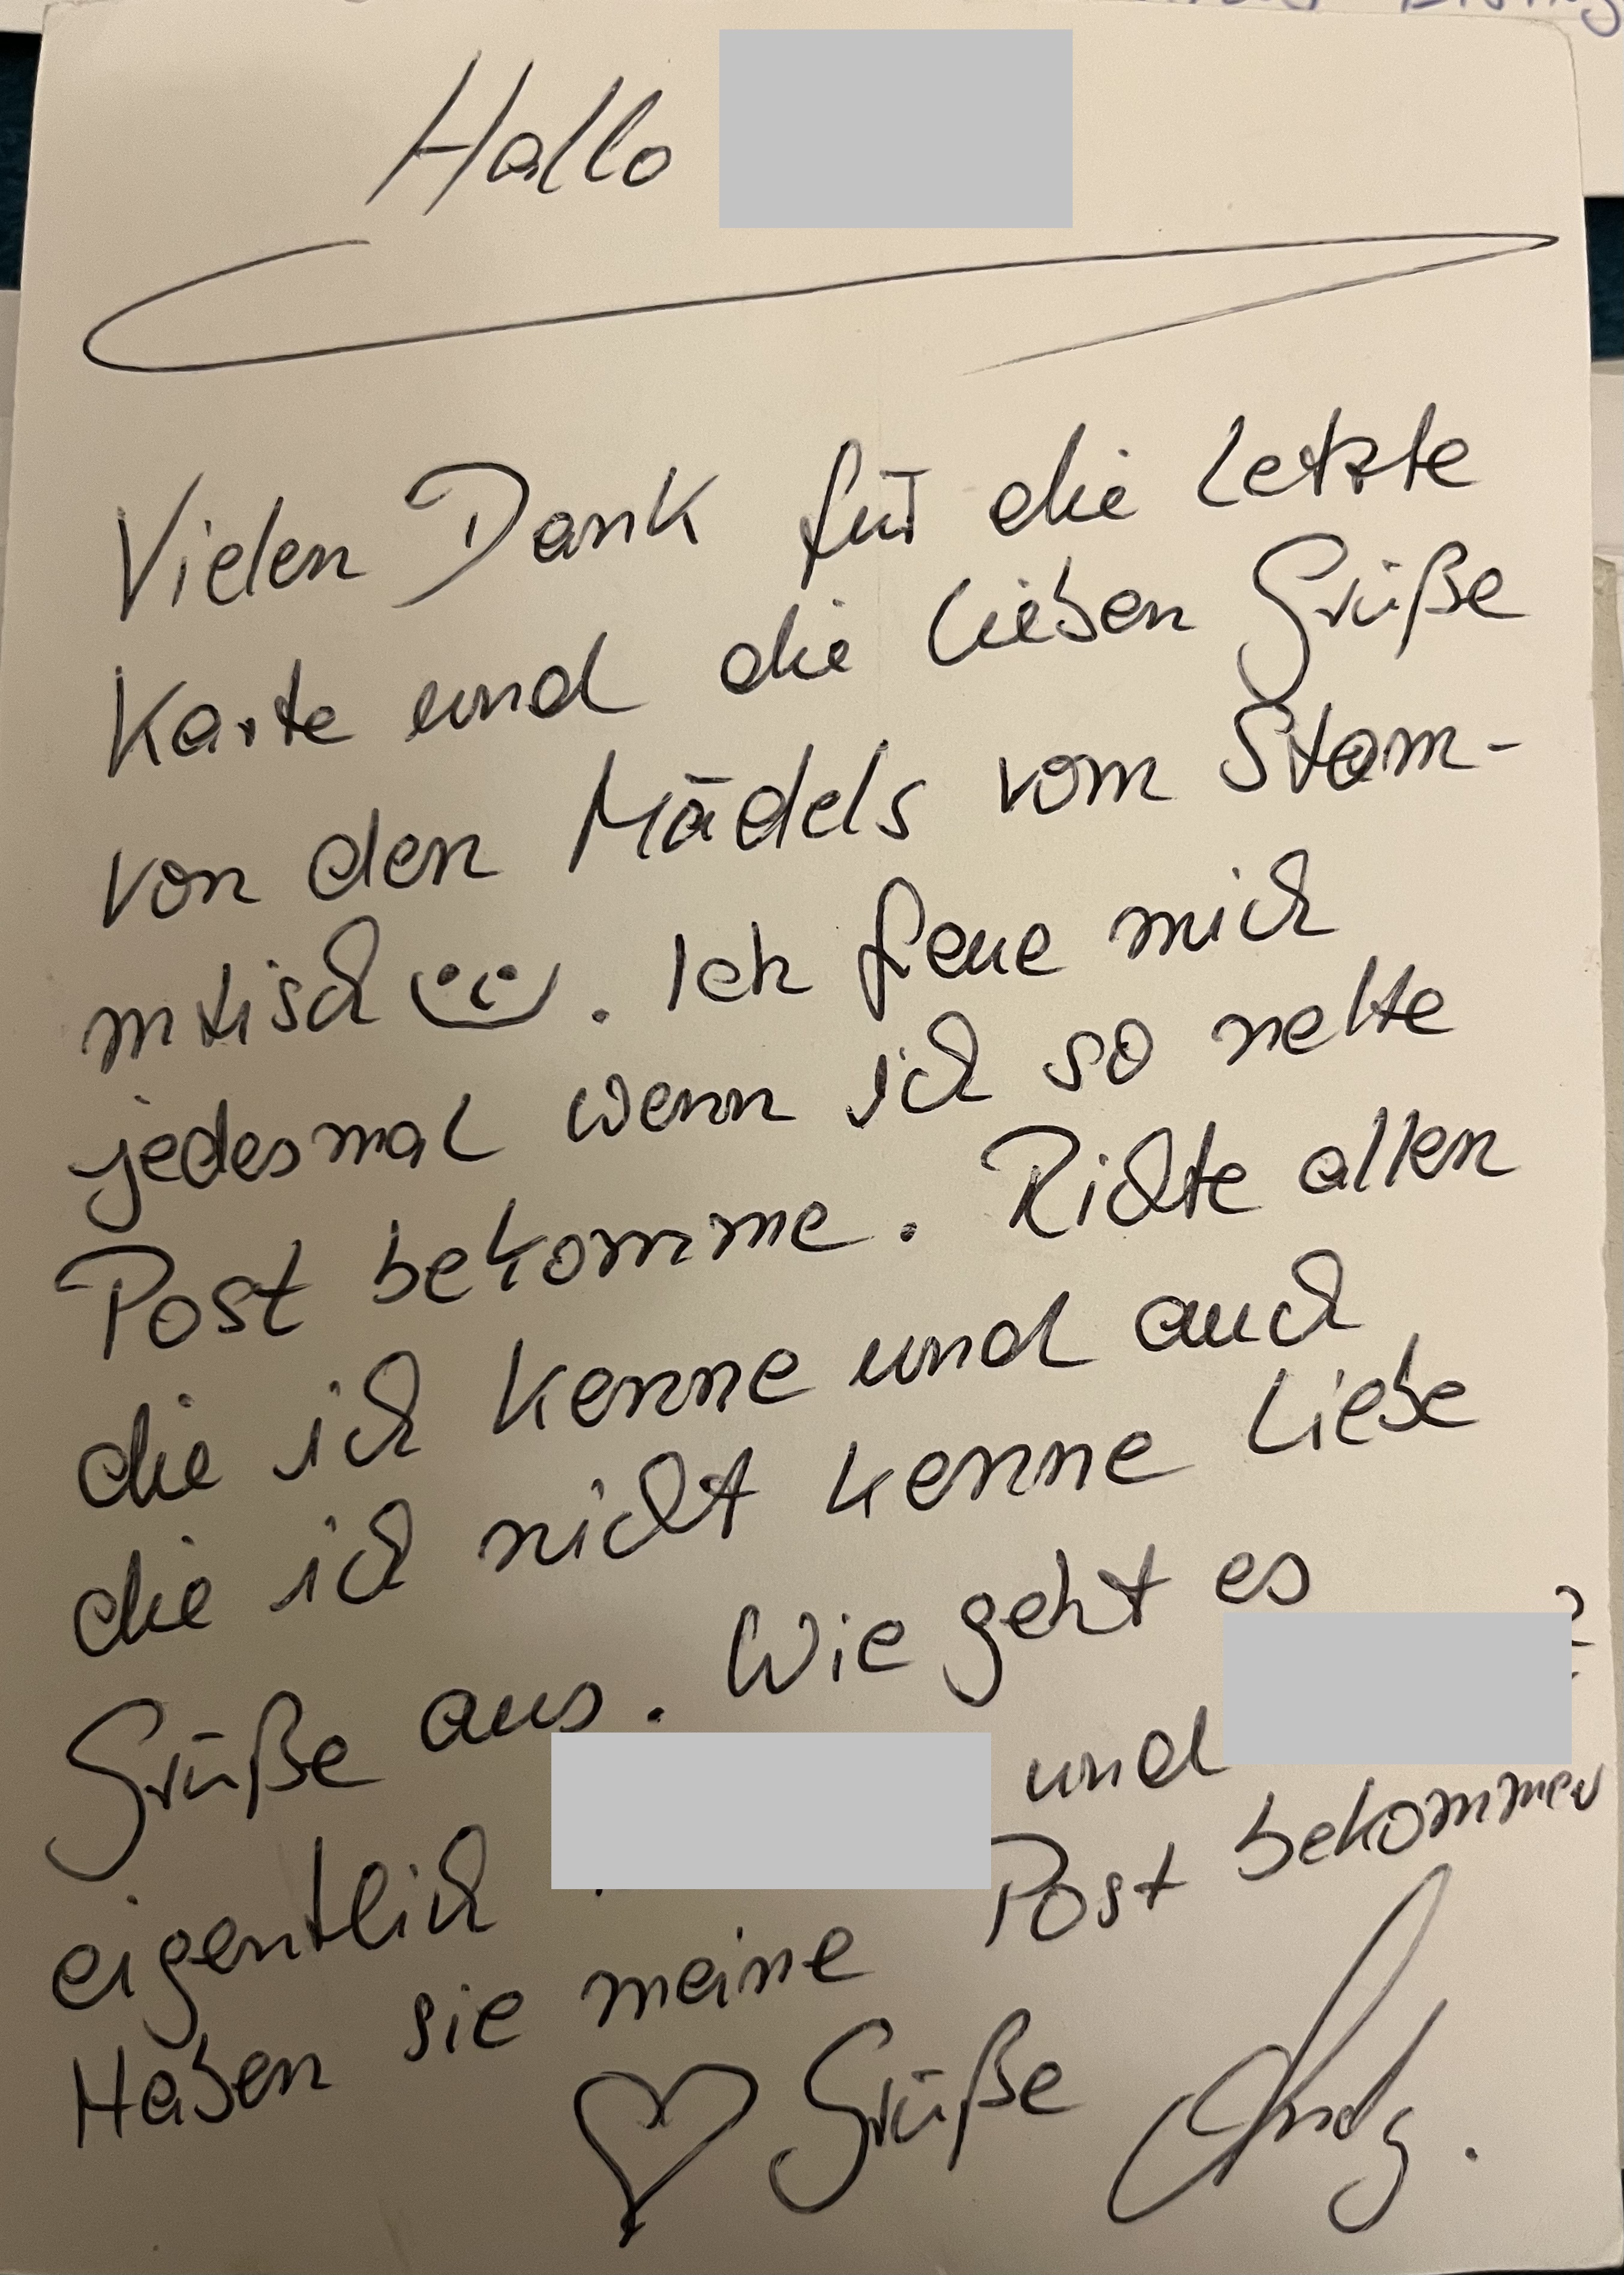 Hallo
Vielen Dank für die letzte
Karte und die lieben Grüße
von den Mädels vom Stam-
mtisch . Ich freue mich
jedesmal wenn ich so nette
Post bekomme. Richte allen
die ich kenne und auch
die ich nicht kenne liebe
Grüße aus. Wie geht es
eigentlich und ?
Haben sie meine Post bekommen
Grüße Andy.